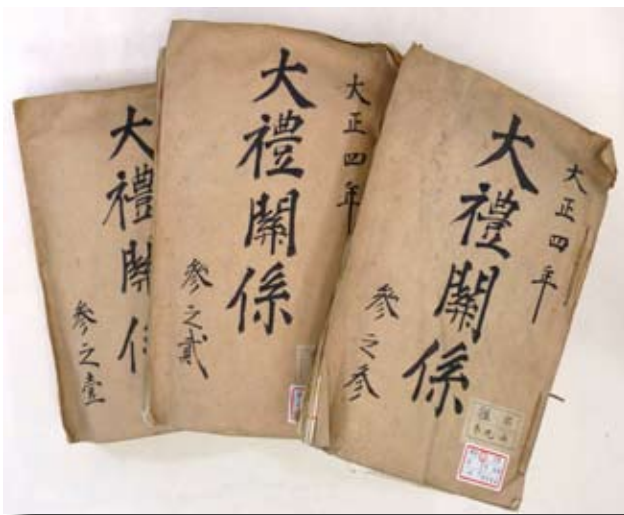 大禮關係
參之壹
大正四年
大禮關係
參之貳
大正四年
大禮關係
參之參